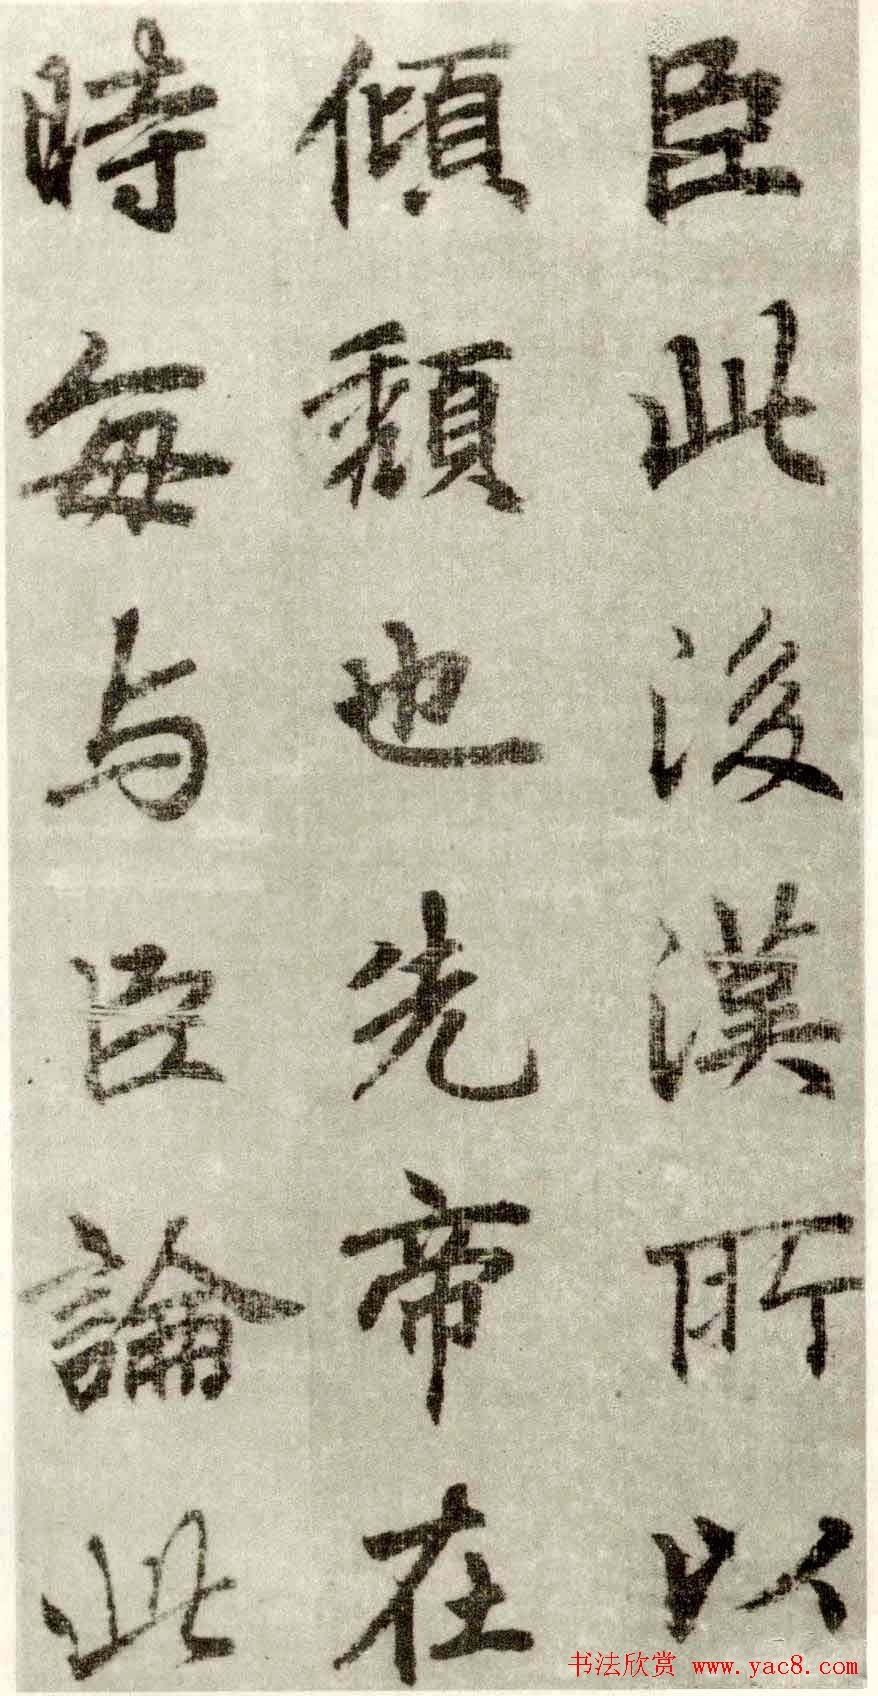 臣此後漢所以
傾頹也先帝在
時每与臣論此
书法欣赏 www.yac8.com